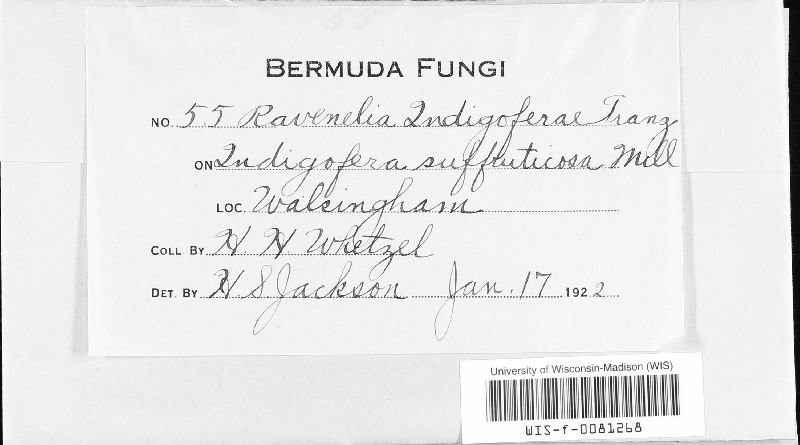 BERMUDA FUNGI
NO. 55 Ravenelia Indigoferae Tranz
ON Indigofera suffruticosa Mill
LOC. Walsingham
COLL BY H. H. Whetzel
DET. BY H S. Jackson Jan. 17 1922
University of Wisconsin-Madison (WIS)
WIS-f-0081268